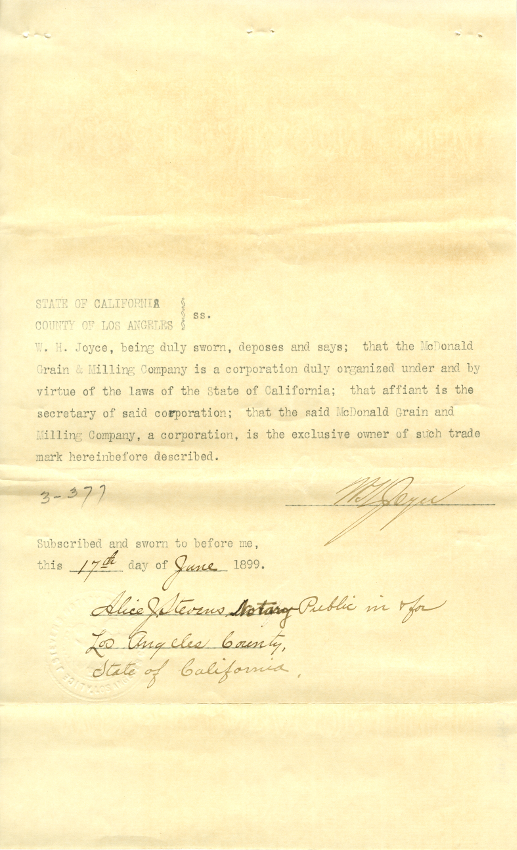 STATE OF CALIFORNIA
ss.
COUNTY OF LOS ANGELES
W. H. Joyce, being duly sworn, deposes and says; that the McDonald
Grain & Milling Company is a corporation duly organized under and by
virtue of the laws of the State of California; that affiant is the
secretary of said corporation; that the said McDonald Grain and
Milling Company, a corporation, is the exclusive owner of such trade
mark hereinbefore described.
3-377
W H Joyce
Subscribed and sworn to before me,
this 17th day of June 1899.
Alice J. Stevens Notary Public in & for
Los Angeles County,
State of California.